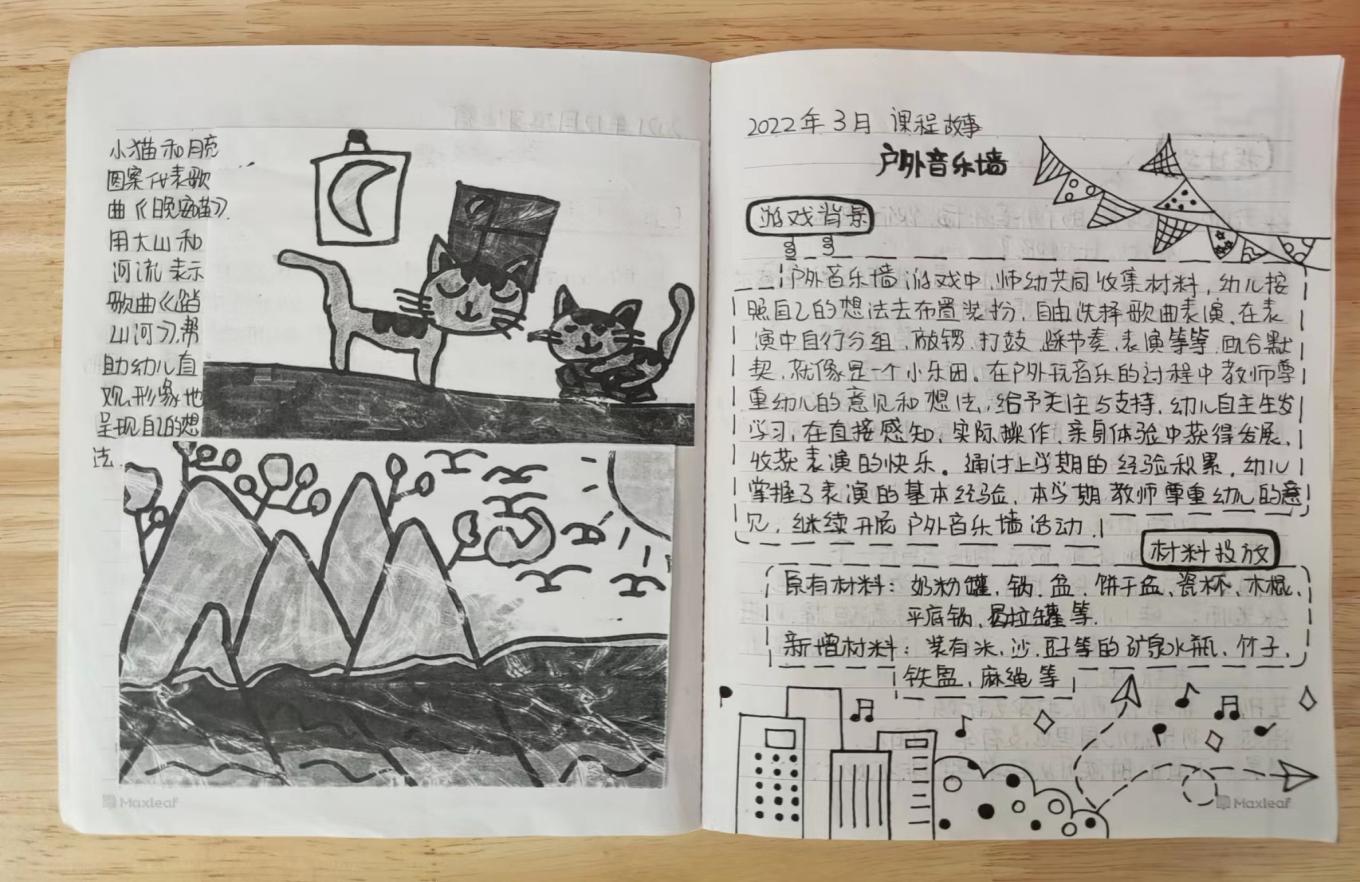 小猫和月亮
图案代表歌
曲《晚安喵》.
用大山和
河流表示
歌曲《踏
山河》,帮
助幼儿直
观、形象地
呈现自己的想
法.
Maxleaf
2022年3月 课程故事
户外音乐墙
游戏背景
户外音乐墙游戏中,师幼共同收集材料,幼儿按
照自己的想法去布置装扮,自由选择歌曲表演,在表
演中自行分组,敲锣、打鼓、踩节奏、表演等等,配合默
契,就像是一个小乐团。在户外玩音乐的过程中教师尊
重幼儿的意见和想法,给予关注与支持,幼儿自主生发
学习,在直接感知,实际操作,亲身体验中获得发展,
收获表演的快乐。通过上学期的经验积累,幼儿
掌握了表演的基本经验,本学期教师尊重幼儿的意
见,继续开展户外音乐墙活动.
材料投放
原有材料:奶粉罐、锅、盆、饼干盒、瓷杯、木棍、
平底锅、易拉罐等.
新增材料:装有米,沙,豆子等的矿泉水瓶、竹子、
铁盆、麻绳等
Maxleaf